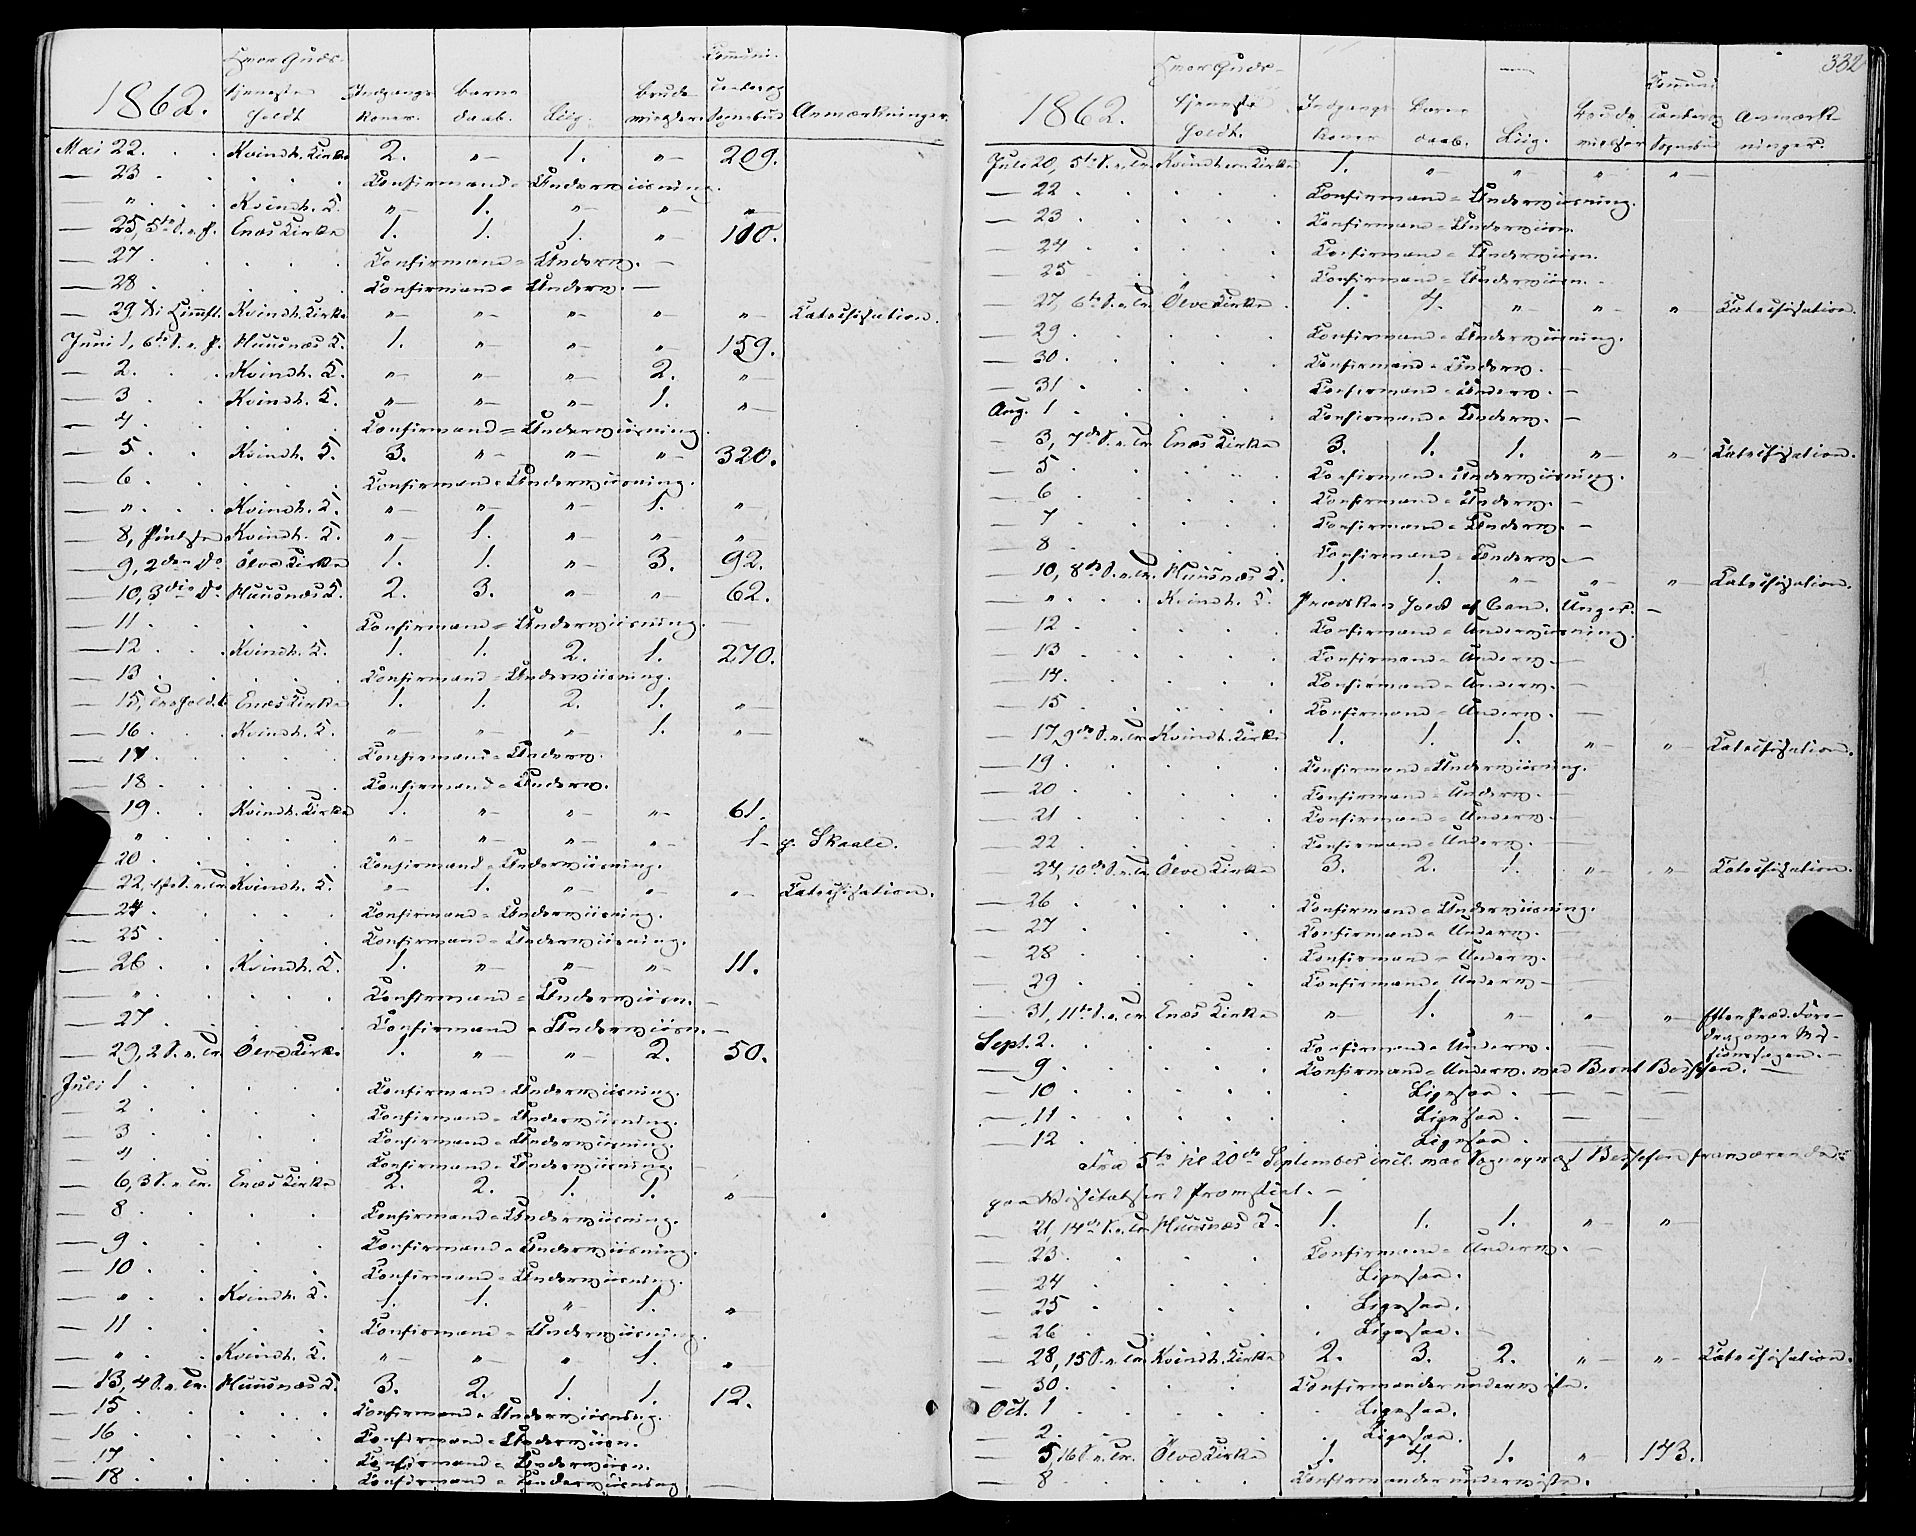 1862. Hvor Guds- tjeneste holdt Indgangs- koner. Barne daab. Liig. Brude- vielser. Communi- canter og Sognebud Anmærkninger.
Mai 22. Kvindh. Kirke 2. " 1. " 209.
— 23 Confirmand-Underviisning.
— " Kvindh. K. " 1. " " "
— 25, 5te S. e. P. Enæs Kirke 1. 1. 1. " 110.
— 27 Confirmand-Underv. —
— 28 Confirmand-Underv. —
— 29 Kr: Himmf. Kvindh. Kirke " " " " " Catechisation.
Juni 1, 6te S. e. P. Huusnæs K. 1. " " " 159.
— 2. Kvindh. K. " " " 2. "
— 3 Kvindh. K. " " " 1. "
— 4. Confirmand-Underviisning.
— 5 Kvindh. K. 3. " " " 320.
— 6 Confirmand-Underviisning.
— " Kvindh. K. " " " 1. "
— 8, Pintse Kvindh. K. " 1. " " "
— 9, 2den Do Ölve Kirke 1. 1. " 3. 92.
— 10, 3die Do Huusnæs K. 2. 3. " " 62.
— 11 Confirmand-Underviisning. —
— 12 Kvindh. K. 1. 1. 2. 1. 270.
— 13 Confirmand-Underviisning.
— 15, Trefold. Enæs Kirke 1. 1. 2. 1. "
— 16 Kvindh. K. " " " 1. "
— 17 Confirmand-Underv.
— 18 Confirmand-Underv.
19 Kvindh. Kirke 1. " " " 61.
" " " " " 1 p. Skaale.
20 Confirmand-Underviisning.
22, 1ste S. e. Tr. Kvindh. K. " 1. " " " Catechisation.
— 24 Confirmand-Underviisning.
— 25 Confirmand-Underviisning.
— 26 Kvindh. K. 1. " " " 11.
— " Confirmand-Underviisn. —
— 27 Confirmand-Underviisn. —
— 29, 2 S. e. Tr. Ölve Kirke 1. " " 2. 50.
Juli 1 Confirmand-Underviisning.
— 2 Confirmand-Underviisning.
— 3 Confirmand-Underviisning.
— 4 Confirmand-Underviisning.
— 6, 3 S. e. Tr. Enæs Kirke 2. 2. 1. 1. "
— 8 Confirmand-Underviisning.
— 9 Confirmand-Underviisning.
— 10 Confirmand-Underviisning.
— " Kvindh. K. 1. 1. " 1. "
— 11 Confirmand-Underviisning.
— " Kvindh. K. " " " 1. "
— 13, 4 S. e. Tr. Huusnæs K. 3. 2. 1. 1. 12.
— 15 Confirmand-Underviisning.
— 16 Confirmand-Underviisn.
— 17 Confirmand-Underviisn.
— 18 Confirmand-Underviisning —
332
1862. Hvor Guds- tjeneste holdt. Indgangs- koner Barne daab. Liig. Brude vielser Communi canter og Sognebud Anmærk- ninger.
Juli 20, 5te S. e. Tr. Kvindherr. Kirke 1. " " " "
— 22 Confirmand-Underviisning.
— 23 Confirmand-Underviisn.
— 24 Confirmand-Underviisn.
— 25 Confirmand-Underviisn. -
— 27, 6te S. e. Tr. Ölve Kirke 1. 4. " " " Catechisation.
— 29 Confirmand-Underviisning.
— 30 Confirmand-Underv. —
— 31 Confirmand-Underv. —
Aug. 1 Confirmand-Underv. —
— 3, 7de S. e. Tr. Enæs Kirke 3. 1. 1. " " Catechisation.
— 5 Confirmand-Underviisning.
— 6 Confirmand-Underv. —
— 7 Confirmand-Underv. —
— 8 Confirmand-Underv. —
— 10, 8de S. e. Tr. Huusnæs K. 1. 1. " " " Catechisation.
— " Kvindh. K. Præken holdt af Cand. Unger. —
— 12 Confirmand-Underviisning.
— 13 Confirmand-Underv. —
— 14. Confirmand-Underv. —
— 15 Confirmand-Underv. —
— 17, 9de S. e. Tr. Kvindh. Kirke 1. 1. 1. " " Catechisation.
— 19 Confirmand-Underviisning.
— 20 Confirmand-Underv. —
— 21 Confirmand-Underv. —
— 22 Confirmand-Underv. —
— 24, 10de S. e. Tr. Ölve Kirke 3. 2. 1. " " Catechisation.
— 26 Confirmand-Underviisning.
— 27 Confirmand-Underv. —
— 28 Confirmand-Underv.
— 29 Confirmand-Underv —
— 31, 11te S. e. Tr. Enæs Kirke " 1. " " " Efter Præd. Fore-
drag over Mis-
sionssagen. —
Sept. 2. Confirmand-Underv. —
— 9 Confirmand-Underv. ved Bernt —
— 10 Ligesaa. — — —
— 11 Ligesaa. — —
— 12 Ligesaa. —
Fra 5te til 20de September incl. var Sognepræst fraværende
paa Visitatser i Provstiet. —
— 21, 14de S. e. Tr. Huusnæs K. 1. 1. 1. " "
— 23 Confirmand-Underv. —
— 24 Ligesaa.
— 25 Ligesaa.
— 26 Ligesaa. -
— 28, 15 S. e. Tr. Kvindh. Kirke 2. 3. 2. " " Catechisation.
— 30 Confirmander underviste.
Oct. 1 Ligesaa.
— 2 Ligesaa.
— 5, 16 S. e. Tr. Ölve Kirke 1. 4. 1. " 143.
— 8 Confirmander underviste.